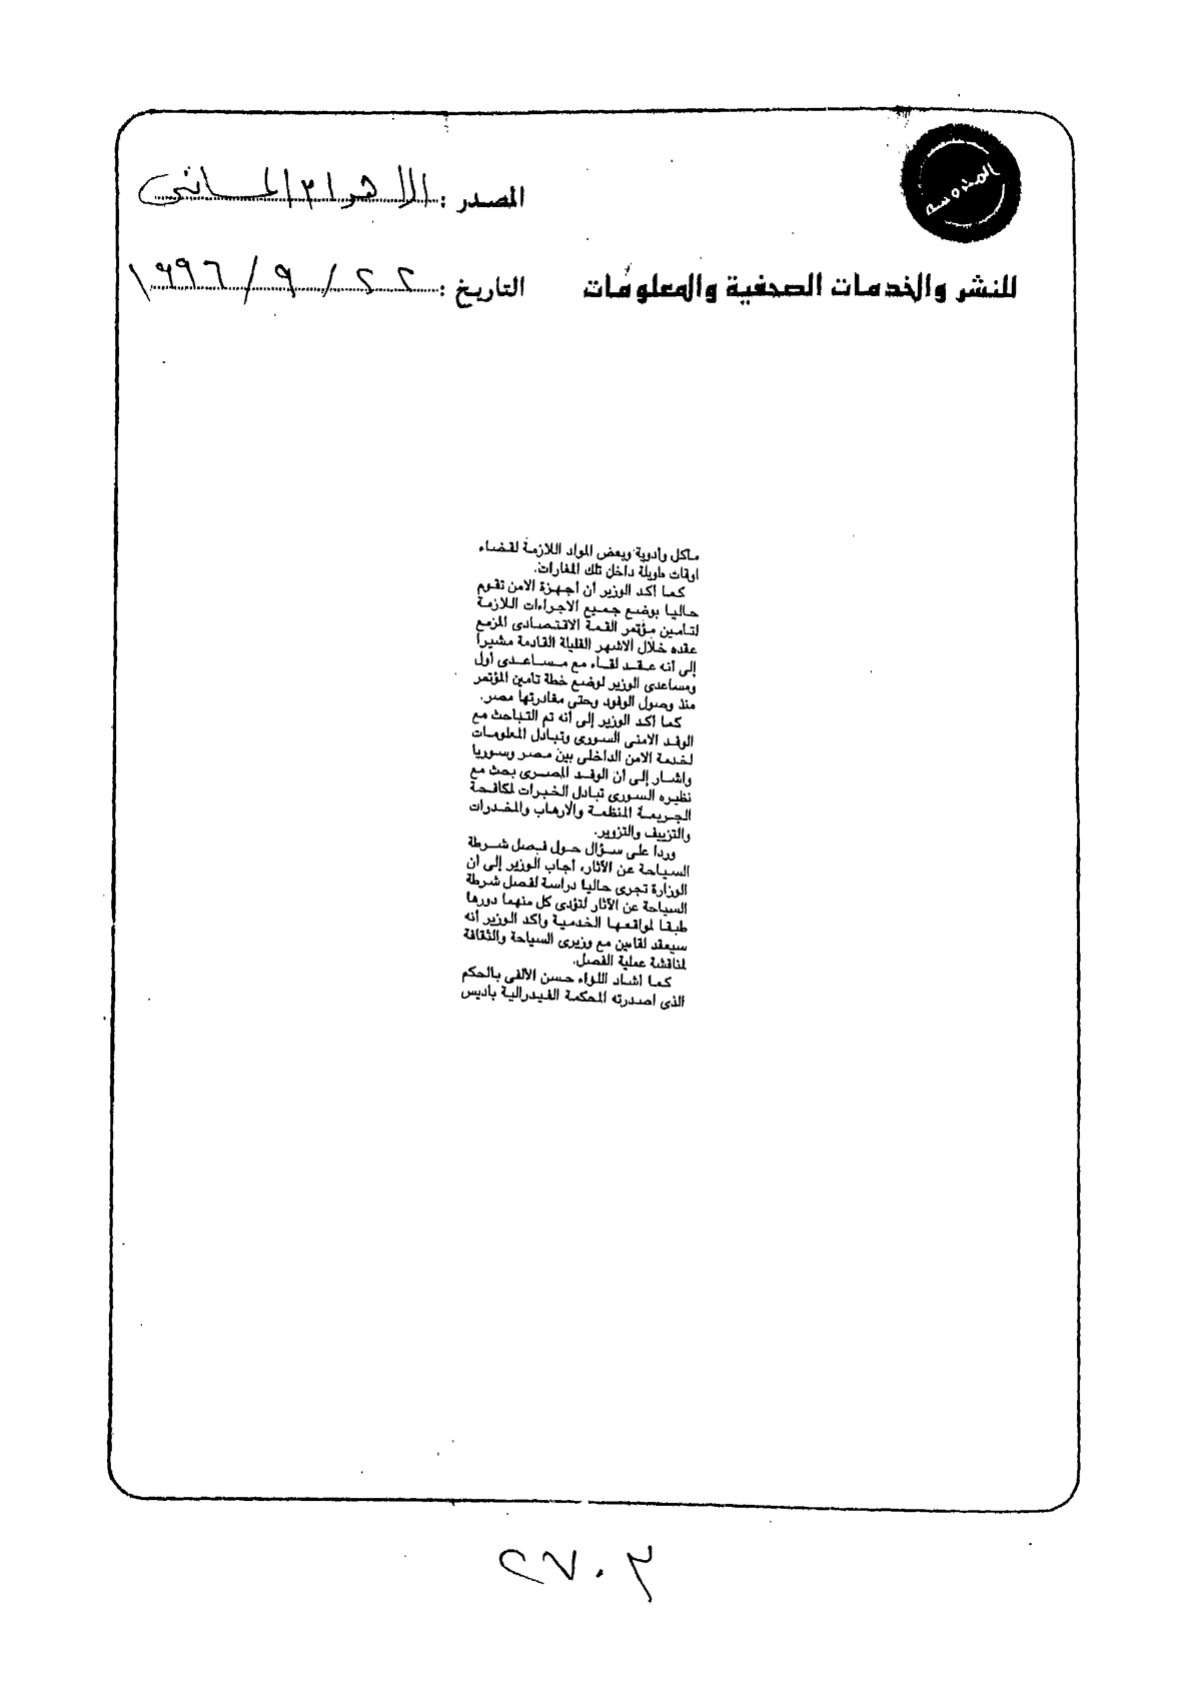 المحروسة
المصدر : الاهرام المسائى
للنشر والخدمات الصحفية والمعلومات
التاريخ : ٢٢ / ٩ / ١٩٩٦
مأكل وأدوية وبعض المواد اللازمة لقضاء
اوقات طويلة داخل تلك المغارات.
كما أكد الوزير أن أجهزة الامن تقوم
حاليا بوضع جميع الاجراءات اللازمة
لتأمين مؤتمر القمة الاقتصادى المزمع
عقده خلال الاشهر القليلة القادمة مشيرا
إلى أنه عقد لقاء مع مساعدى أول
ومساعدى الوزير لوضع خطة تأمين المؤتمر
منذ وصول الوفود وحتى مغادرتها مصر.
كما أكد الوزير إلى أنه تم التباحث مع
الوفد الامنى السورى وتبادل المعلومات
لخدمة الامن الداخلى بين مصر وسوريا
واشار إلى أن الوفد المصرى بحث مع
نظيره السورى تبادل الخبرات لمكافحة
الجريمة المنظمة والارهاب والمخدرات
والتزييف والتزوير.
وردا على سؤال حول فصل شرطة
السياحة عن الآثار، أجاب الوزير إلى أن
الوزارة تجرى حاليا دراسة لفصل شرطة
السياحة عن الآثار لتؤدى كل منهما دورها
طبقا لمواقعها الخدمية واكد الوزير أنه
سيعقد لقاءين مع وزيرى السياحة والثقافة
لمناقشة عملية الفصل.
كما أشاد اللواء حسن الألفى بالحكم
الذى اصدرته المحكمة الفيدرالية باديس
٢٧٠٣